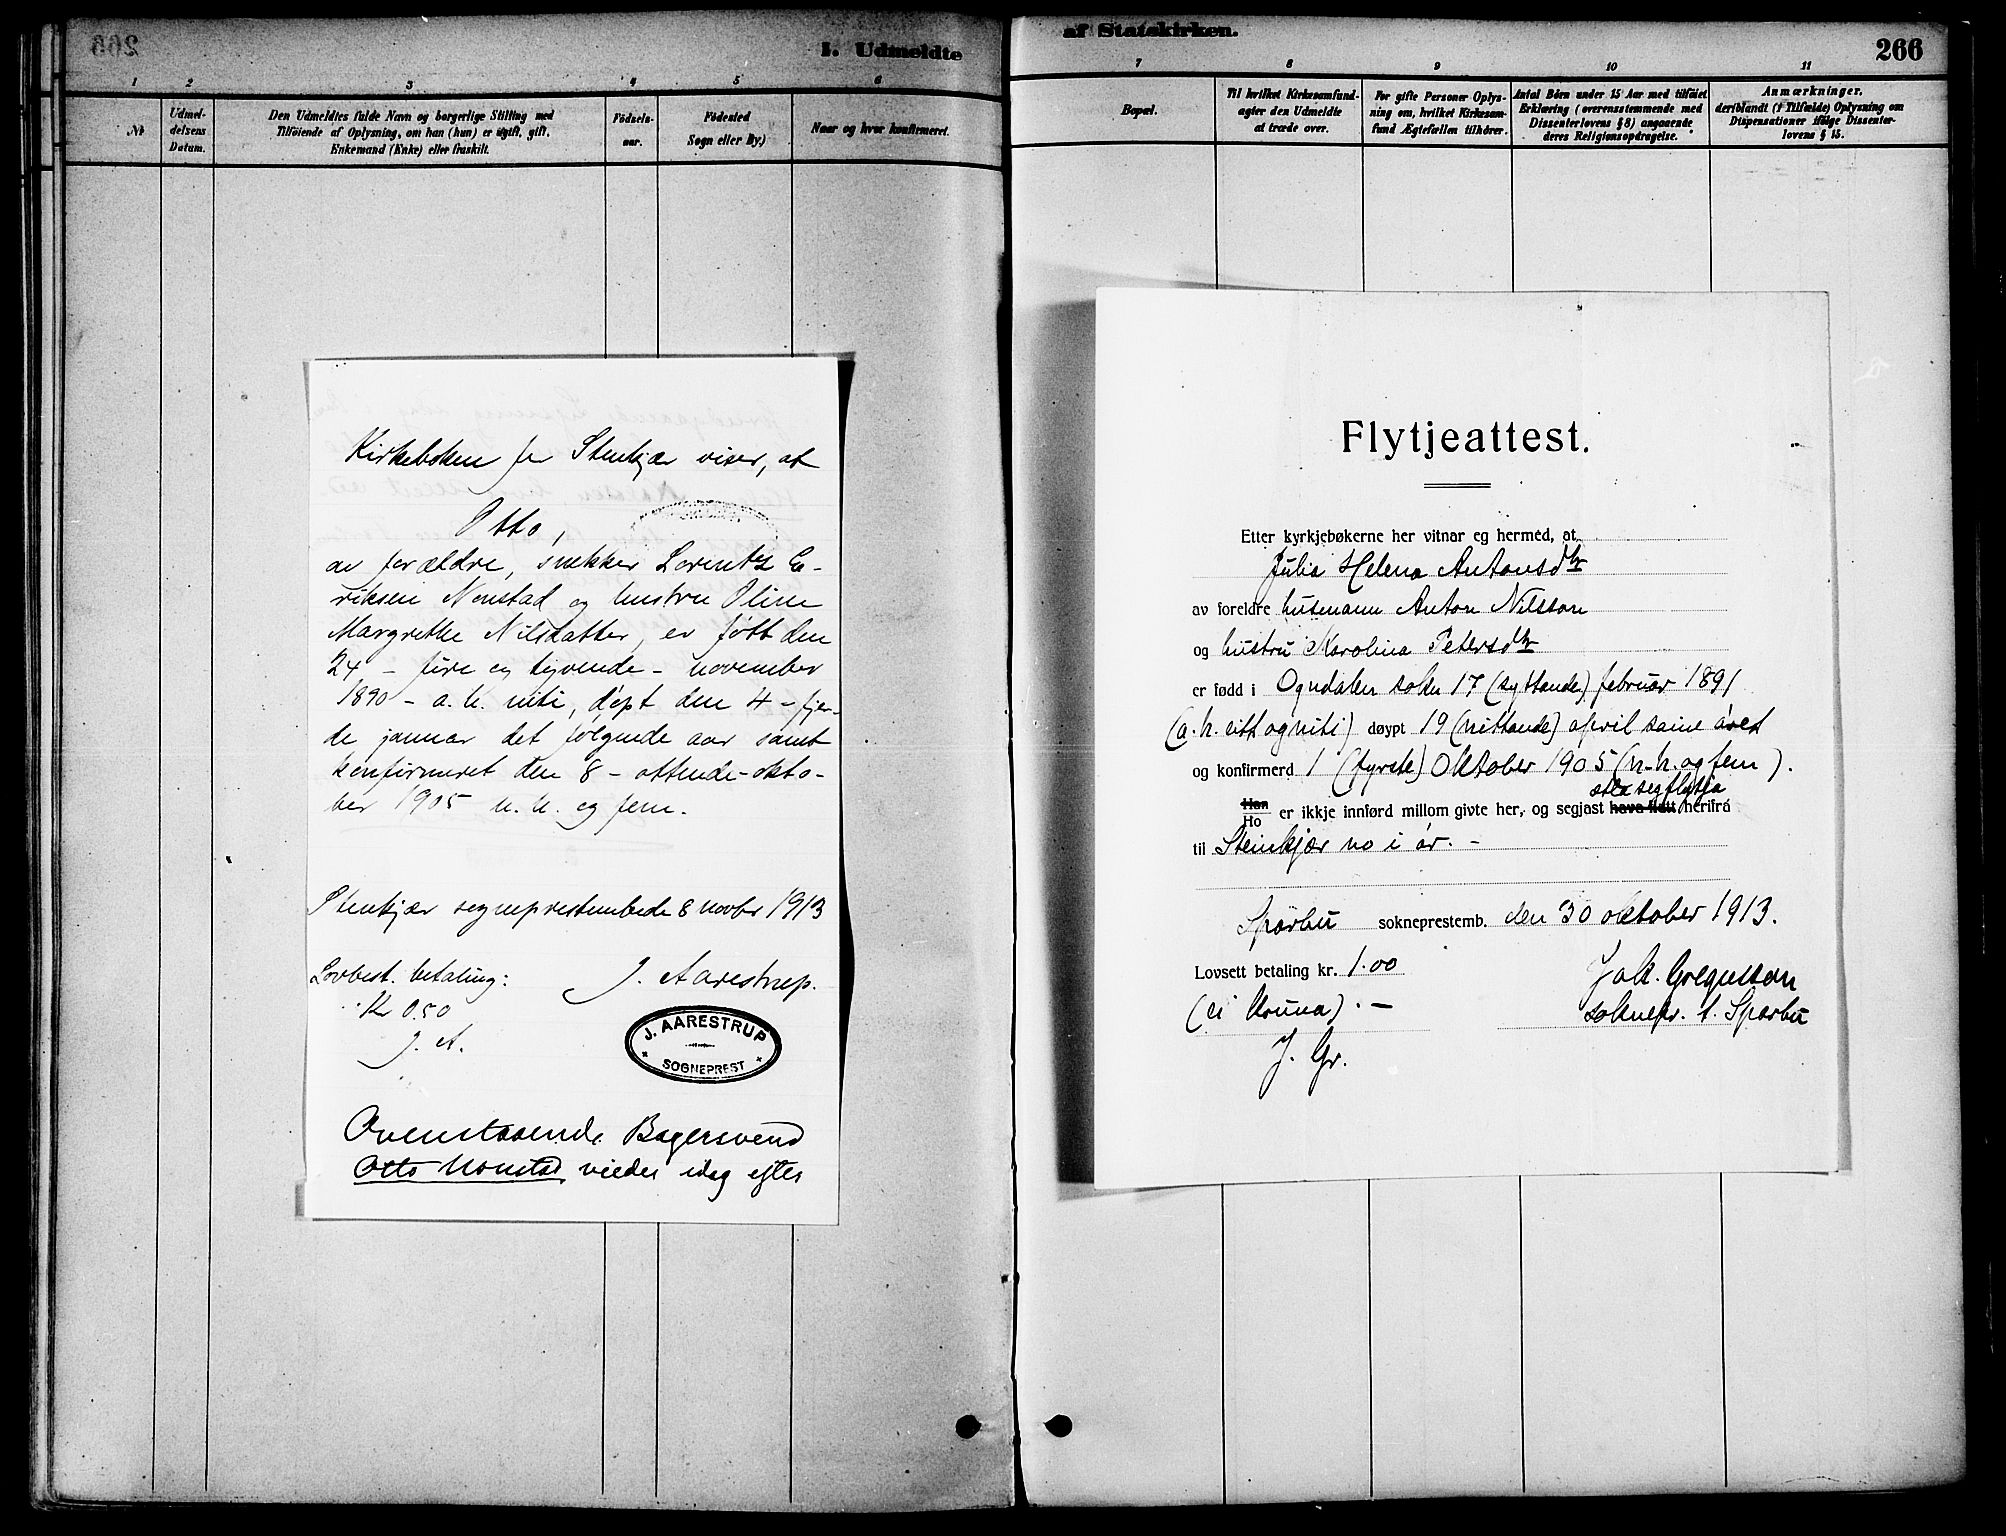 266
1. Udmeldte
1
2
3
4
5
6
№
Udmel-
delsens
Datum.
Den Udmeldtes fulde Navn og borgerlige Stilling med
Tilføiende af Oplysning, om han (hun) er ugift, gift,
Enkemand (Enke) eller fraskilt.
Födsels-
aar.
Födested
Sogn eller By.)
Naar og hvor konfirmeret.
Kirkeboken for Stenkjær viser, at
Otto,
av forældre, snekker Lorents E-
riksen Nonstad og hustru Oline
Margrethe Nilsdatter, er født den
24 - fire og tyvende - november
1890 - a. h. niti, døpt den 4 - fjer-
de januar det følgende aar samt
konfirmeret den 8 - ottende - okto-
ber 1905 n. h. og fem.
Stenkjær sogneprestembede 8 novbr 1913
Lovbest. betaling:
J. Aarestrup.
Kr 0.50
J. A.
J. AARESTRUP
SOGNEPREST
Ovenstaaende Bagersvend
Otto Nonstad vieder idag efter
af Statskirken.
266
7
8
9
10
11
Bopæl.
Til hvilket Kirkesamfund
agter den Udmeldte
at træde over.
For gifte Personer Oplys-
ning om, hvilket Kirkesam-
fund Ægtefællen tilhörer.
Antal Börn under 15 Aar med tilføiet
Erklæring (overensstemmende med
Dissenterlovens § 8) angaaende
deres Religionsopdragelse.
Anmærkninger,
deriblandt (i Tilfælde) Oplysning om
Dispensationer ifölge Dissenter-
lovens § 15.
Flytjeattest.
Etter kyrkjebøkerne her vitnar eg hermed, at
Julia Helena Antonsdtr
av foreldre husmann Anton Nilsson
og hustru Karolina Petersdtr
er fødd i Ogndalen sokn 17 (syttande) februar 1891
(a. h. eitt og niti) døypt 19 (nittande) april same året
og konfirmerd 1 (fyrste) Oktober 1905 (n. h. og fem).
etla seg flytja
Han
Ho er ikkje innførd millom givte her, og segjast hava flutt herifrå
til Steinkjær no i år. -
Sparbu sokneprestemb. den 30 oktober 1913.
Lovsett betaling kr. 1.00
Jak. Gregusson
(ei kruna). -
soknepr. t. Sparbu
J. Gr.